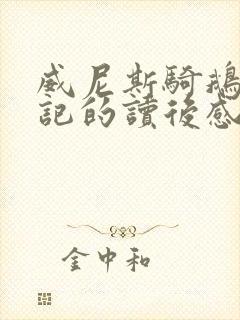 威尼斯騎鵝
記的讀後感
金中和